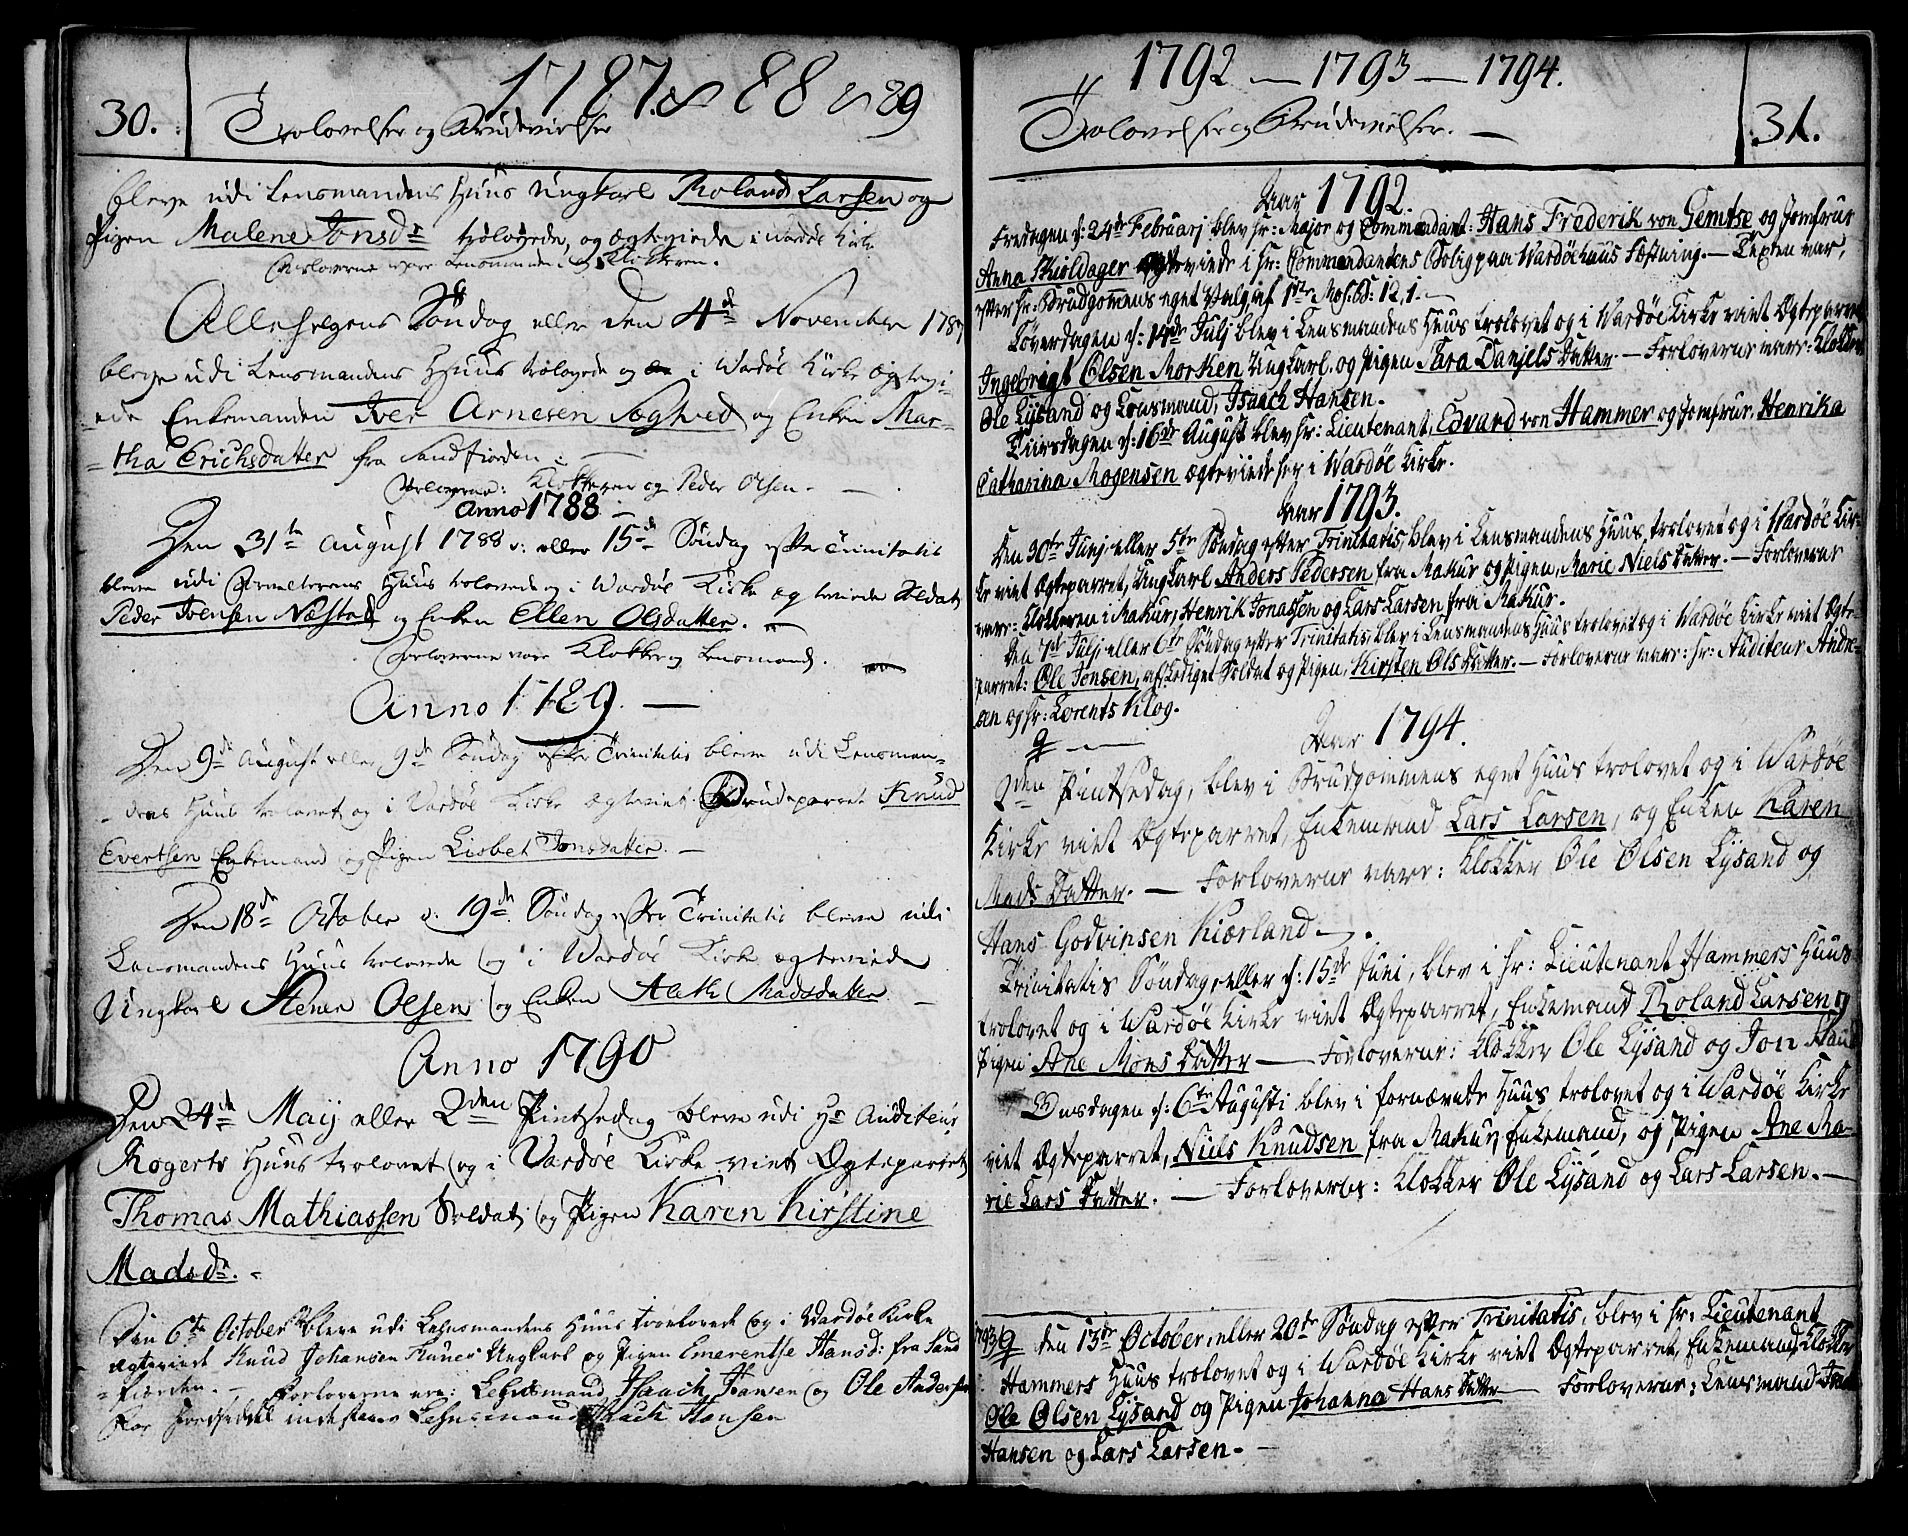 30.
1787 & 88 & 89
Trolovelser og Brudevielser
bleve udi Lensmandens Huus Ungkarl Roland Larsen og
Pigen Malene Jonsdr trolovede, og ægteviede i Wardøe Kirke
Forloverne vare Lensmanden og Klokkeren.
Allehelgens Søndag eller den 4de November 1787
bleve udi Lensmandens Huus trolovede og i Wardøe Kirke ægtevi-
ede Enkemanden Iver Arnesen Søghved og Enken Mar-
tha Erichsdatter fra Sandfiorden. —
Forloverne: Klokkeren og Peder Olsen. —
Anno 1788 —
Den 31te August 1788 eller 15de Søndag efter Trinitatis
bleve udi Huus trolovede og i Wardøe Kirke ægteviede Soldat
Peder Iversen Næstad og Enken Ellen Olsdatter. —
Forloverne vare Klokker og Lensmand.
Anno 1789. —
Den 9de August eller 9de Søndag efter Trinitatis bleve udi Lensman-
dens Huus trolovet og i Vardøe Kirke ægteviet Brudeparret Knud
Evertsen Enkemand og Pigen Lisbet Jonsdatter. —
Den 18de October e: 19de Søndag efter Trinitatis bleve udi
Lensmandens Huus trolovede og i Wardøe Kirke ægteviede
Ungkarl Stener Olsen og Enken Madsdatter —
Anno 1790
Den 24de Maij eller 2den Pintsedag bleve udi Hr Auditeur
Rogerts Huus trolovet og i Vardøe Kirke viet Ægteparret
Thomas Mathiassen Soldat og Pigen Karen Kirstine
Madsdr. -
Den 6te October bleve udi Lehnsmandens Huus troelovede og i Vardøe Kirke
ægteviede Knud Johansen Ungkarl og Pigen Emerentse Hansd: fra Sand
fiorden. — Forloverne ere: Lehnsmand Isaach Hansen og Ole Andersen
For indestaaer Lehnsmand Isaach Hansen
1792 — 1793 — 1794.
Trolovelser og Brudevielser. —
31.
Aar 1792
Fredagen d: 24de Februarj blev hr: Major og Commendant: Hans Frederik von Gemtse og Jomfrue
Anna Skioldager ægteviede i hr: Commendantens Bolig paa Wardøehuus Fæstning. — Texten var,
efter hr: Brudgommens eget Valg af 1ste Mos. B: 12,1. —
Løverdagen d: 14de Julj blev i Lensmandens Huus trolovet og i Wardøe Kirke viet Ægteparret
Ingebrigt Olsen Morken Ungkarl, og Pigen Sara Danjels Datter. — Forloverne vare: Klokker
Ole Lysand og Lensmand, Isaach Hansen.
Tiirsdagen d: 16de August blev hr: Lieutenant, Edvard von Hammer og Jomfrue Henrika
Catharina Mogensen ægteviede her i Wardøe Kirke.
Aar 1793.
Den 30te Junj eller 5te Søndag efter Trinitatis, blev i Lensmandens Huus, trolovet og i Wardøe Kir-
ke viet Ægteparret, Ungkarl Anders Pedersen fra Makur og Pigen, Marie Niels Datter. — Forloverne
vare: Klokkeren i Makur, Henrik Jonassen og Lars Larsen fra Makur.
Den 7de Julj eller 6te Søndag efter Trinitatis, blev i Lensmandens Huus trolovet og i Wardøe Kirke viet Ægte-
parret: Ole Jonsen, afskediget Soldat og Pigen, Kirsten Ols Datter. — Forloverne vare: hr: Auditeur Andre-
sen og hr: Lorents Klog.
Aar 1794.
2den Pintsedag, blev i Brudgommens eget Huus trolovet og i Wardøe
Kirke viet Ægteparret, Enkemand Lars Larsen, og Enken Karen
Mads Datter. — Forloverne vare: Klokker Ole Olsen Lysand og
Hans Godvinsen Kiærland —.
Trinitatis Søndag eller d: 15de Juni, blev i hr: Lieutenant Hammers Huus
trolovet og i Wardøe Kirke viet Ægteparret, Enkemand Roland Larsen og
Pigen Ane Mons Datter — Forloverne: Klokker Ole Lysand og Jon
Onsdagen d: 6te Augusti blev i fornævnte Huus trolovet og i Wardøe Kirke
viet Ægteparret, Niels Knudsen fra Makur, Enkemand, og Pigen Ane Ma-
rie Lars Datter. — Forloverne: Klokker Ole Lysand og Lars Larsen. —
1793 den 13de October, eller 20de Søndag efter Trinitatis, blev i hr: Lieutenant
Hammers Huus trolovet og i Wardøe Kirke viet Ægteparret, Enkemand, Klokker
Ole Olsen Lysand og Pigen Johanna Hans Datter — Forloverne: Lensmand Isaac
Hansen og Lars Larsen. —